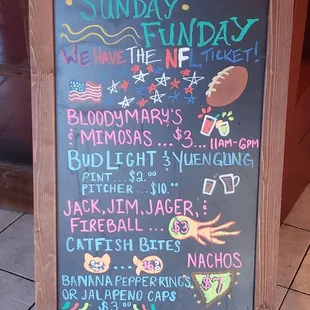 SUNDAY
FUNDAY
WE HAVE THE NFL TICKET!
BLOODYMARY'S
& MIMOSAS ... $3 ... 11AM-6PM
BUD LIGHT & YUENGLING
PINT .... $2.00
PITCHER .... $10.00
JACK, JIM, JAGER, &
FIREBALL ... $3
CATFISH BITES
NACHOS
$7
BANANA PEPPER RINGS
OR JALAPENO CAPS
$3.00